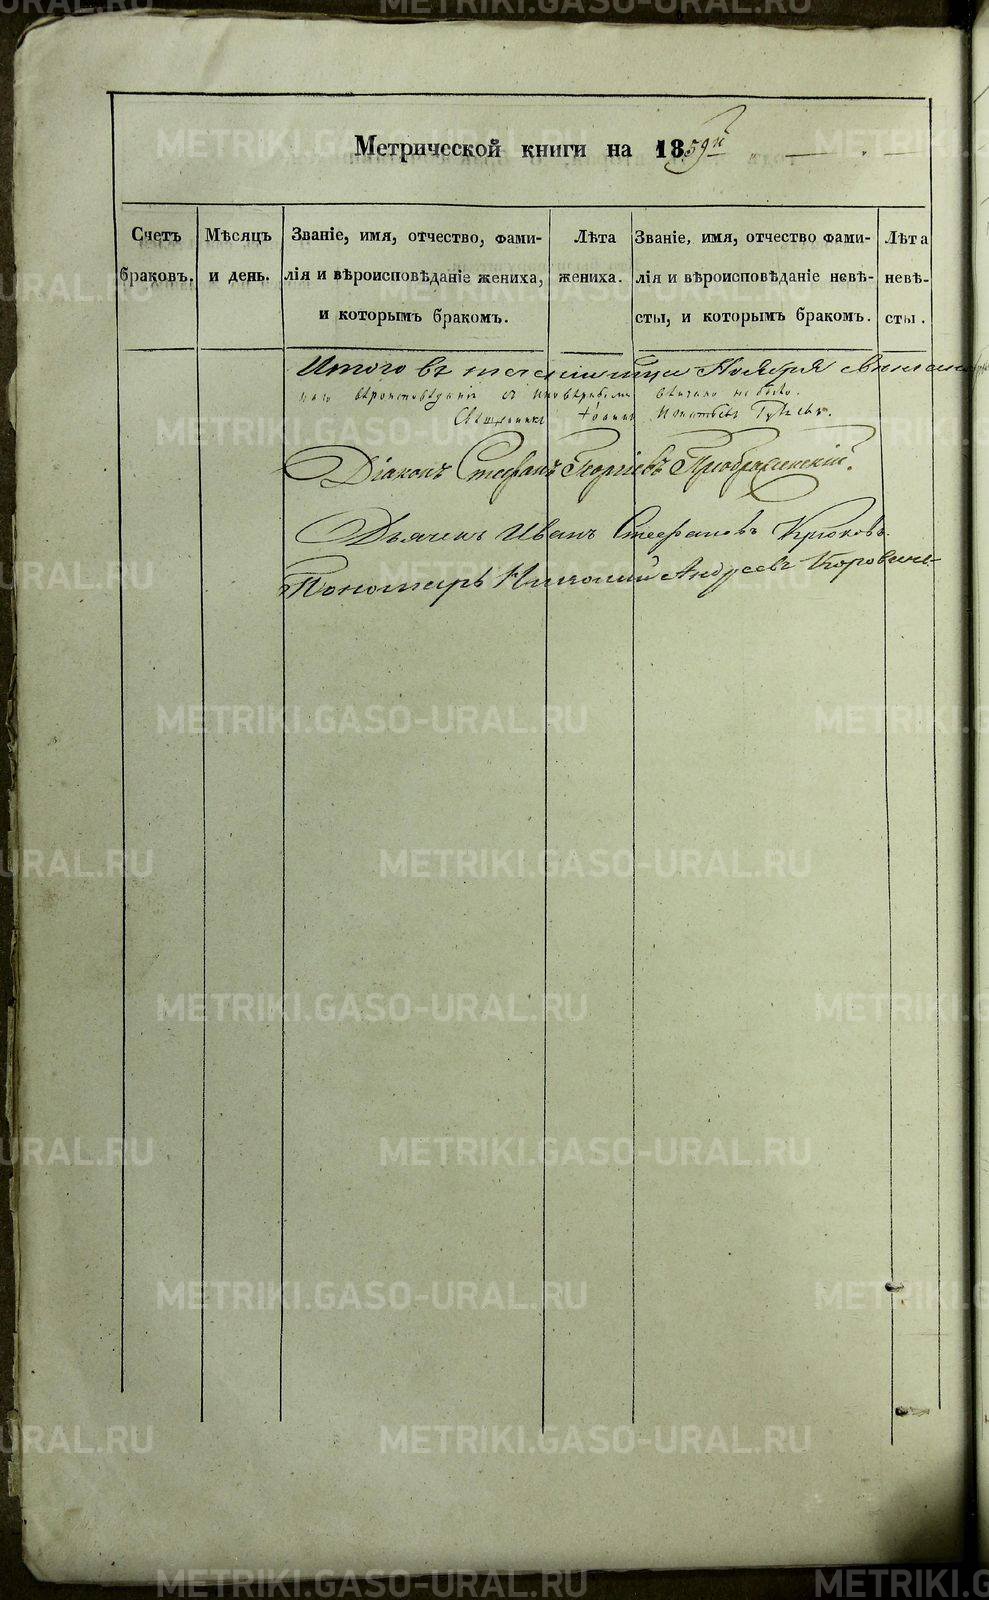 Метрической книги на 1859й
Счетъ
браковъ.
Мѣсяцъ
и день.
Званіе, имя, отчество, фами-
лія и вѣроисповѣданіе жениха,
и которымъ бракомъ.
Лѣта
жениха.
Званіе, имя, отчество фами-
лія и вѣроисповѣданіе невѣ-
сты, и которымъ бракомъ.
Лѣта
невѣ-
сты.
Итого въ Ноября
вѣроисповѣданія съ иновѣрными вѣнчано не было.
Священникъ Іоаннъ Игнатьевъ
Діаконъ Стефанъ Георгіевъ Преображенскій.
Дьячекъ Иванъ Стефановъ Крюковъ
Пономарь Николай Андреевъ Коровинъ
METRIKI.GASO-URAL.RU